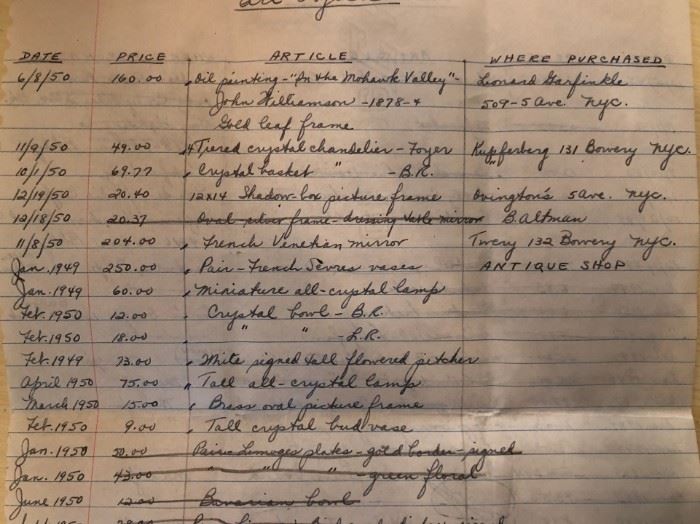 DATE PRICE ARTICLE WHERE PURCHASED
6/8/50 160.00 Oil painting - "In the Mohawk Valley" - Leonard Garfinkle
John Williamson - 1878 - & 509 - 5 Ave. Nyc.
Gold leaf frame
11/9/50 49.00 4 Tiered crystal chandelier - Foyer Kupferberg 131 Bowery Nyc.
10/1/50 69.77 Crystal basket " - B.R.
12/19/50 20.40 12x14 Shadow-box picture frame Ovington's 5 Ave. Nyc.
12/18/50 20.37 Oval silver frame - dressing table mirror B. Altman
11/8/50 204.00 French Venetian mirror 132 Bowery Nyc.
Jan. 1949 250.00 Pair - French Sevres vases ANTIQUE SHOP
Jan. 1949 60.00 Miniature all-crystal lamp
Feb. 1950 12.00 Crystal bowl - B.R.
Feb. 1950 18.00 " " - L.R.
Feb. 1949 23.00 White signed tall flowered pitcher
April 1950 75.00 Tall all-crystal lamp
March 1950 15.00 Brass oval picture frame
Feb. 1950 9.00 Tall crystal bud vase
Jan. 1950 50.00 Pair Limoges plates - gold border - signed
Jan. 1950 43.00 " " " - green floral
June 1950 12.00 Bavarian bowl